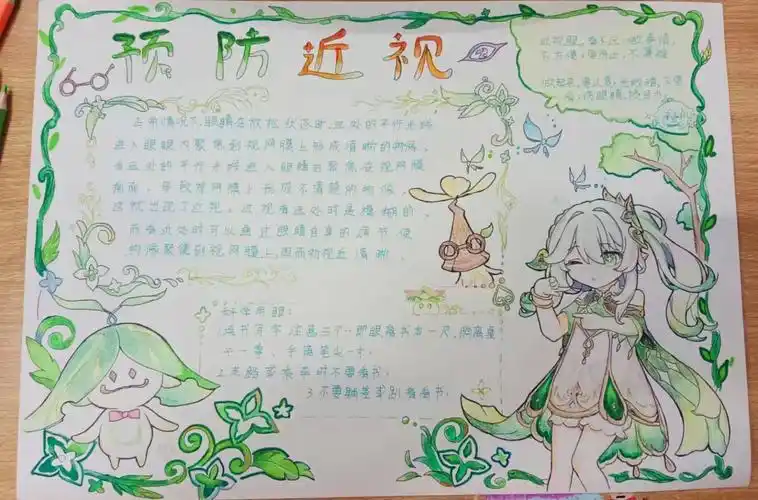 预防近视
近视眼，看不见，做事情，
不方便，
正常情况下，眼睛在放松状态时，远处的平行光线
进入眼睛内聚焦到视网膜上形成清晰的物像，
当远处的平行光线进入眼睛后聚焦在视网膜
前面，导致视网膜上形成不清楚的物像，
这就出现了近视。近视看远处时是模糊的，
而看近处时可以通过眼睛自身的调节，使
物像聚焦到视网膜上，因而初视近清晰。
科学用眼：
1.读书写字，注意三个一即眼离书本一尺，胸离桌
子一拳，手离笔尖一寸；
2.走路或乘车时不要看书；
3.不要躺着或趴着看书；